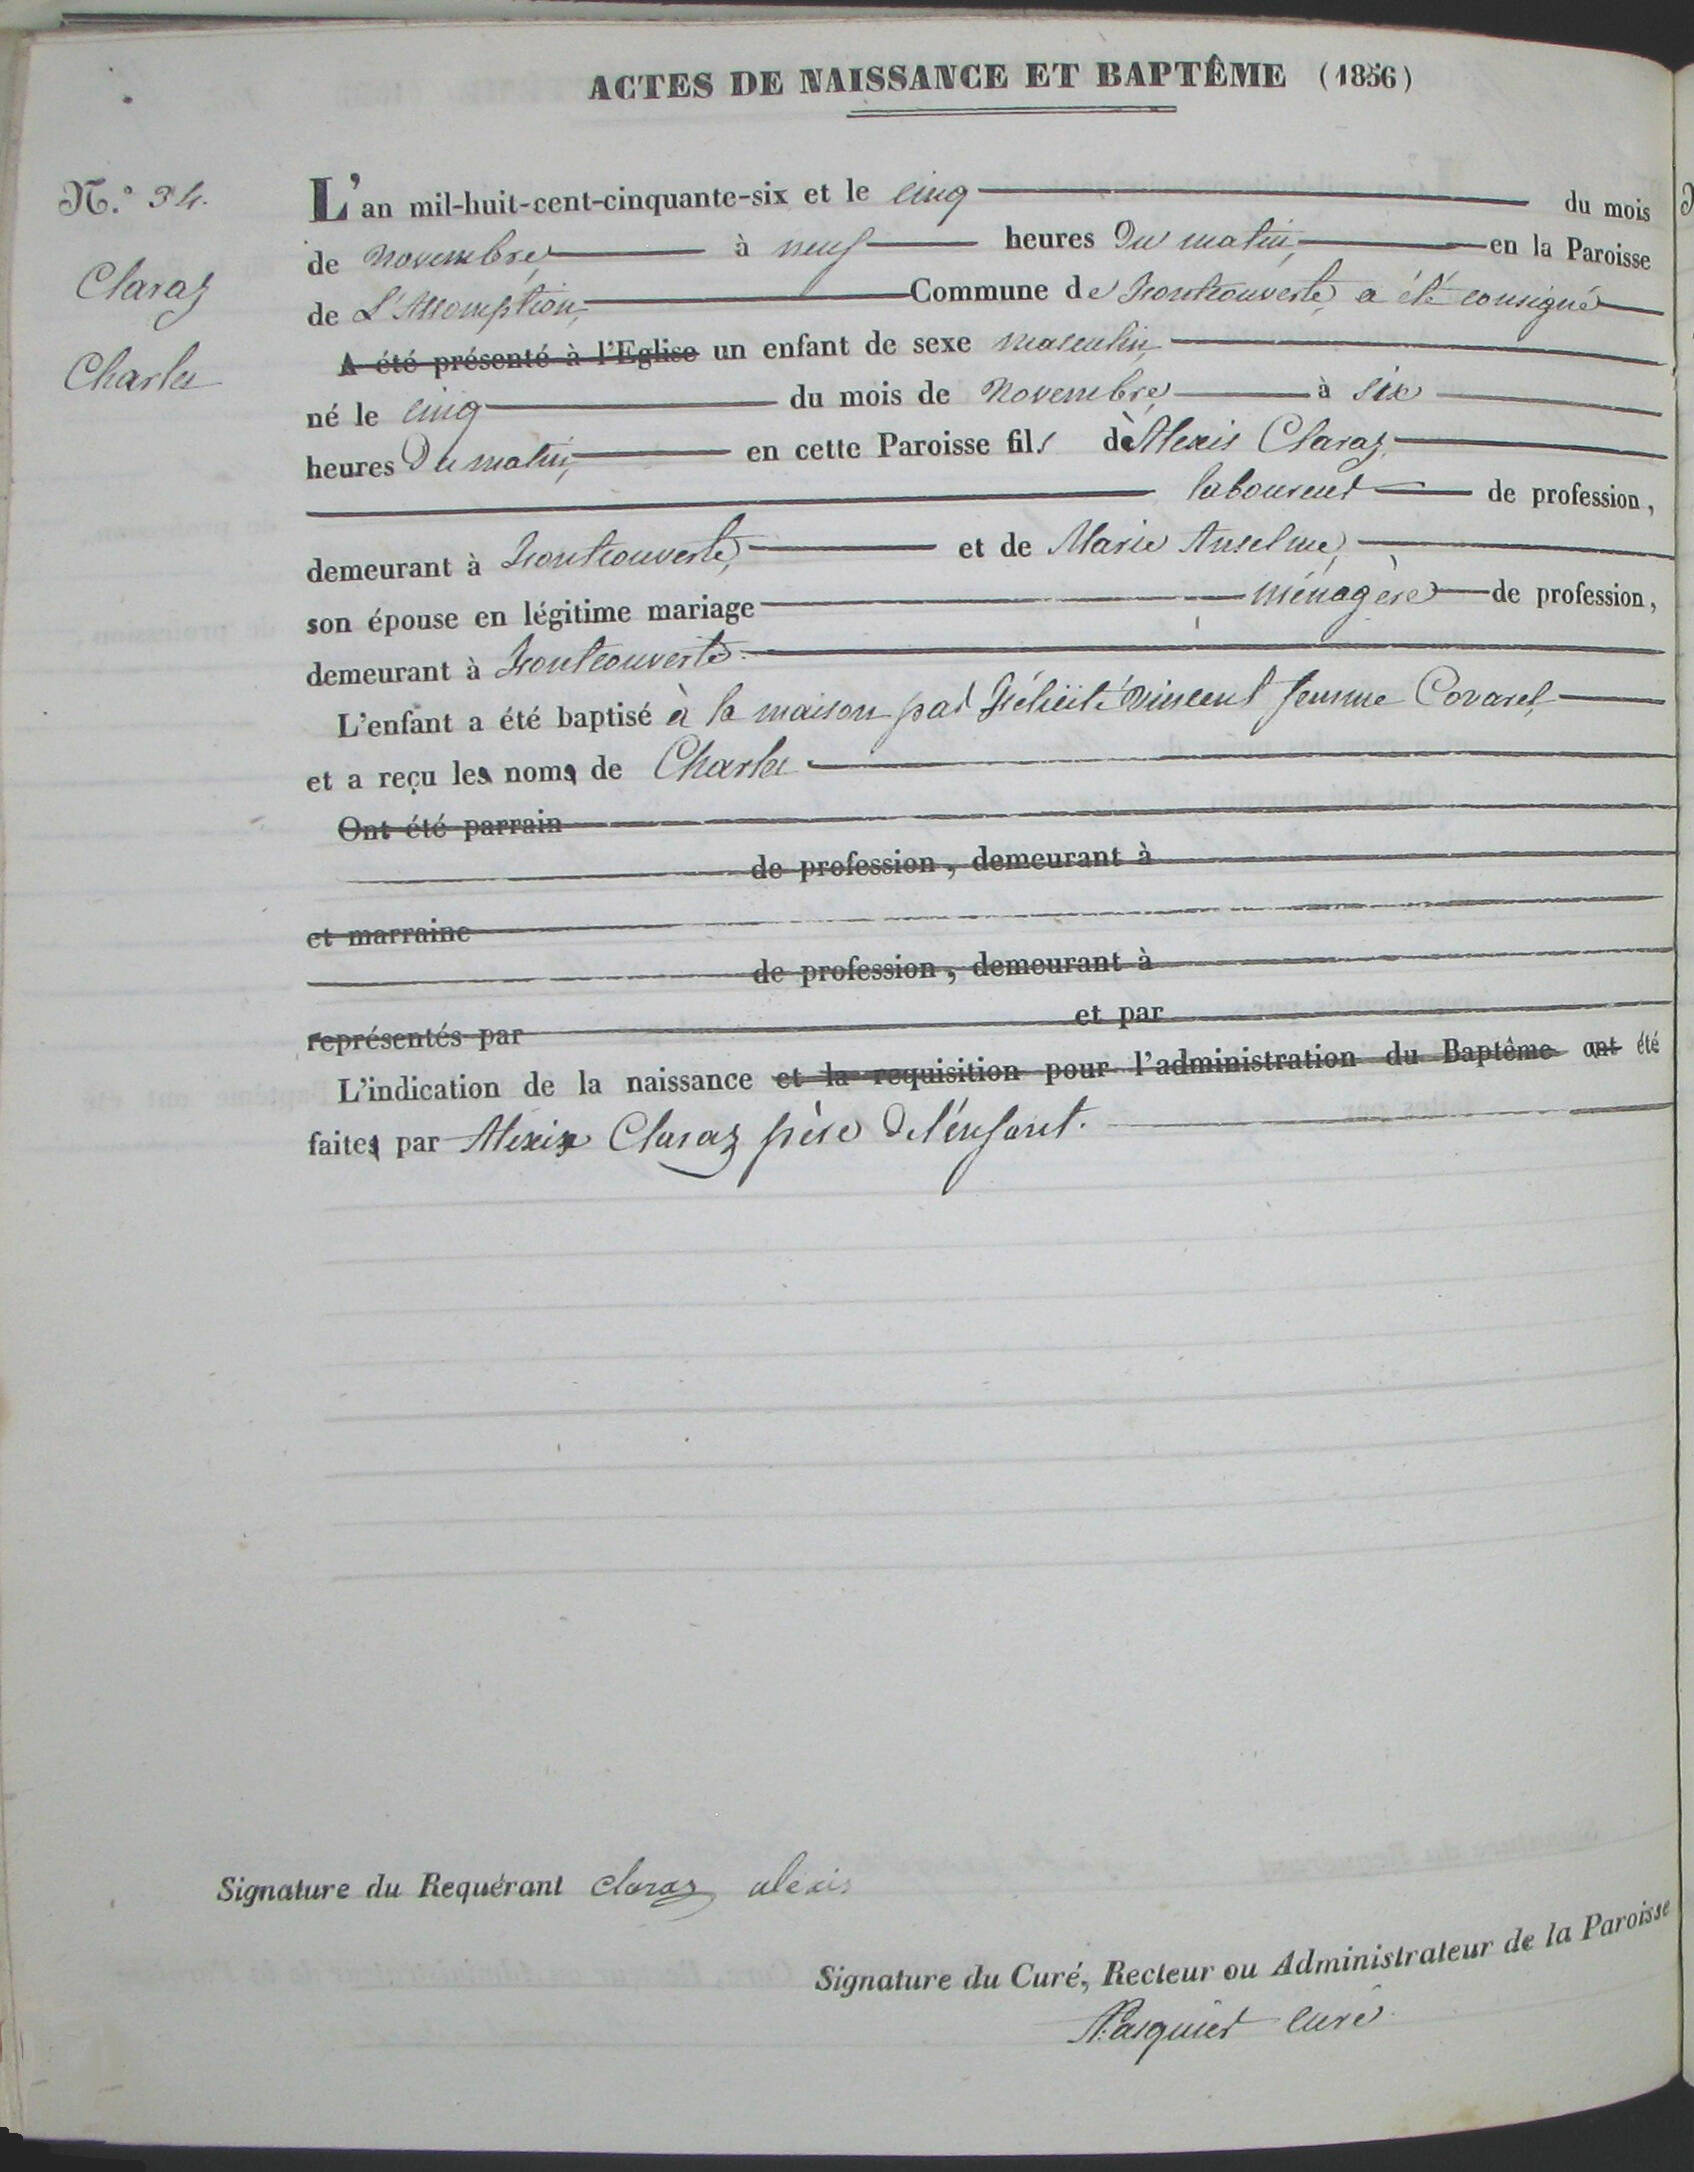 ACTES DE NAISSANCE ET BAPTÊME (1856)
N.° 34.
Claraz
Charles
L'an mil-huit-cent-cinquante-six et le cinq du mois
de novembre, à neuf heures du matin, en la Paroisse
de L'Assomption, Commune de Fontcouverte, a été consigné
A été présenté à l'Eglise un enfant de sexe masculin
né le cinq du mois de novembre, à six
heures du matin, en cette Paroisse fils de Alexis Claraz,
laboureur de profession,
demeurant à Fontcouverte, et de Marie Anselme,
son épouse en légitime mariage ménagère de profession,
demeurant à Fontcouverte.
L'enfant a été baptisé à la maison par Félicité Vincent femme Covarel,
et a reçu les noms de Charles
Ont été parrain
de profession, demeurant à
et marraine
de profession, demeurant à
représentés par et par
L'indication de la naissance et la requisition pour l'administration du Baptême ont été
faites par Alexis Claraz père de l'enfant.
Signature du Requérant claraz alexis
Signature du Curé, Recteur ou Administrateur de la Paroisse
Pasquier curé